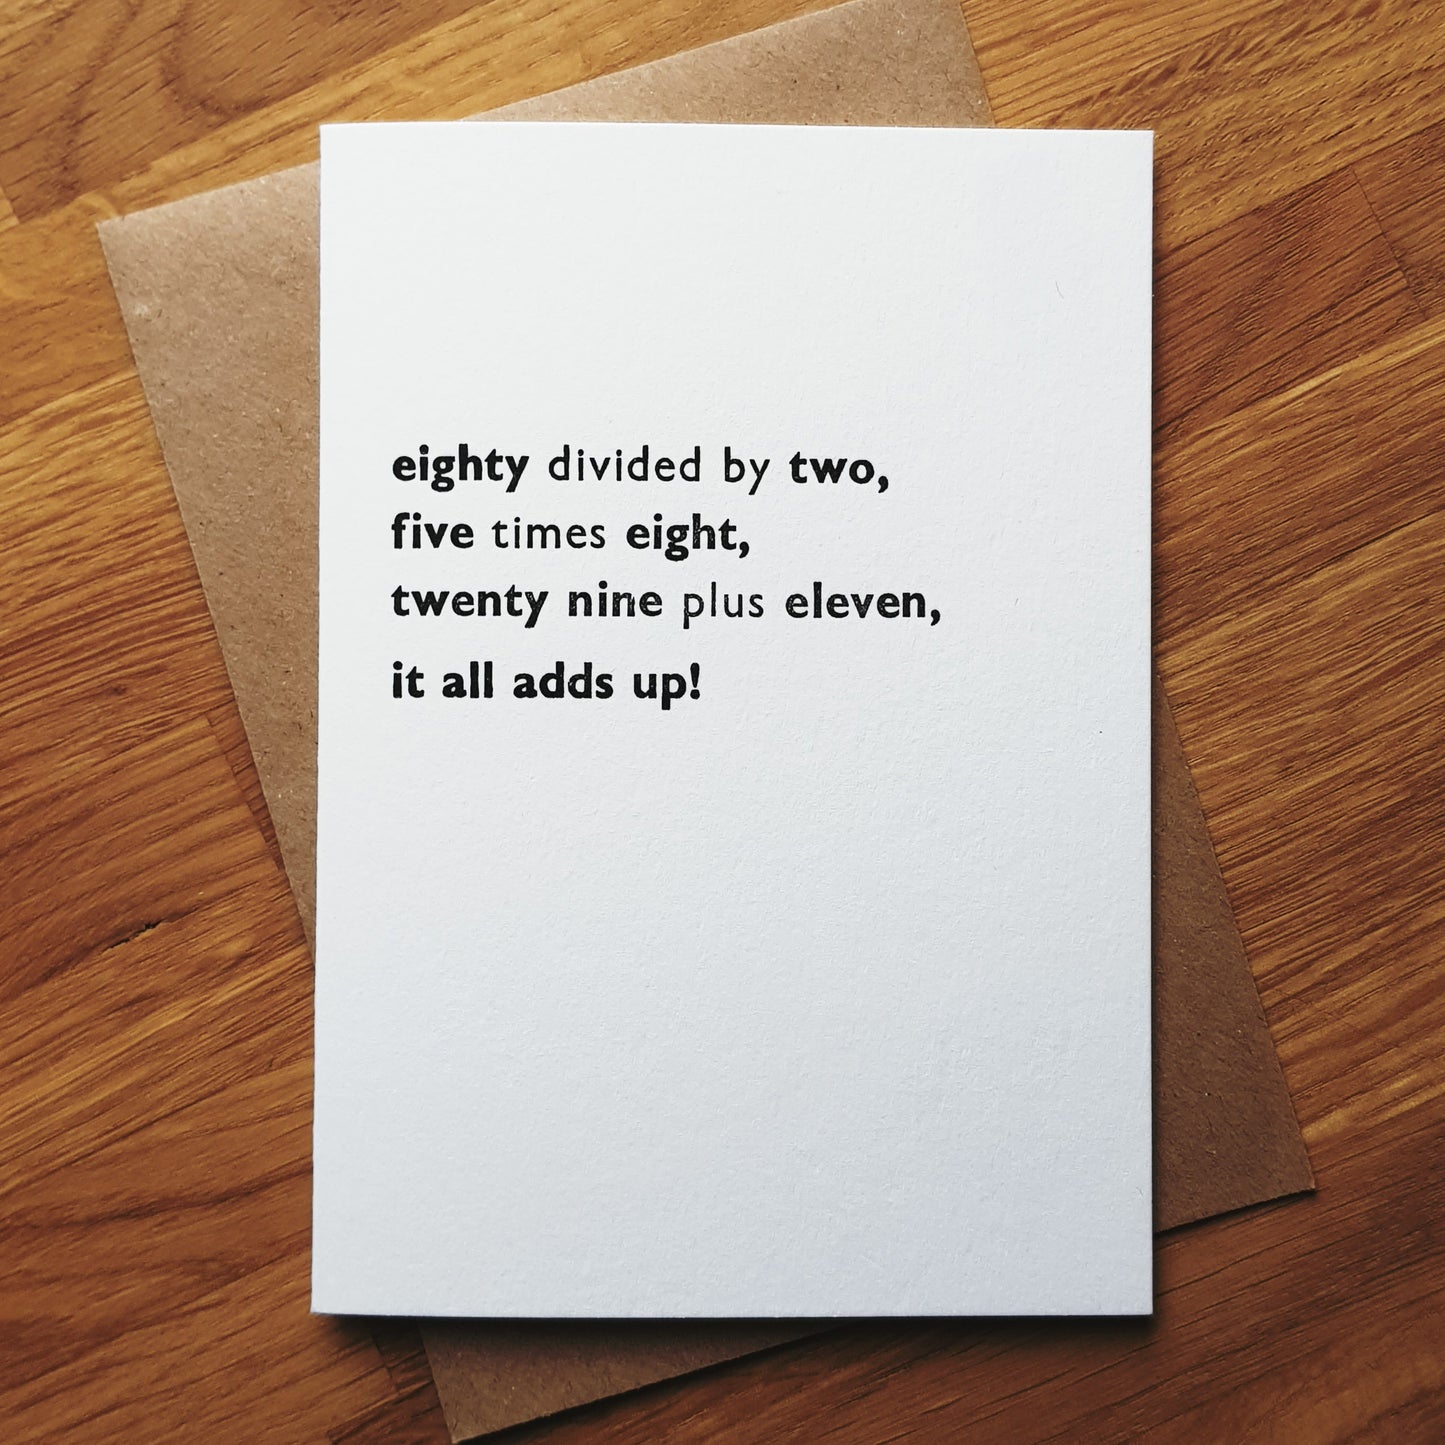 eighty divided by two,
five times eight,
twenty nine plus eleven,
it all adds up!